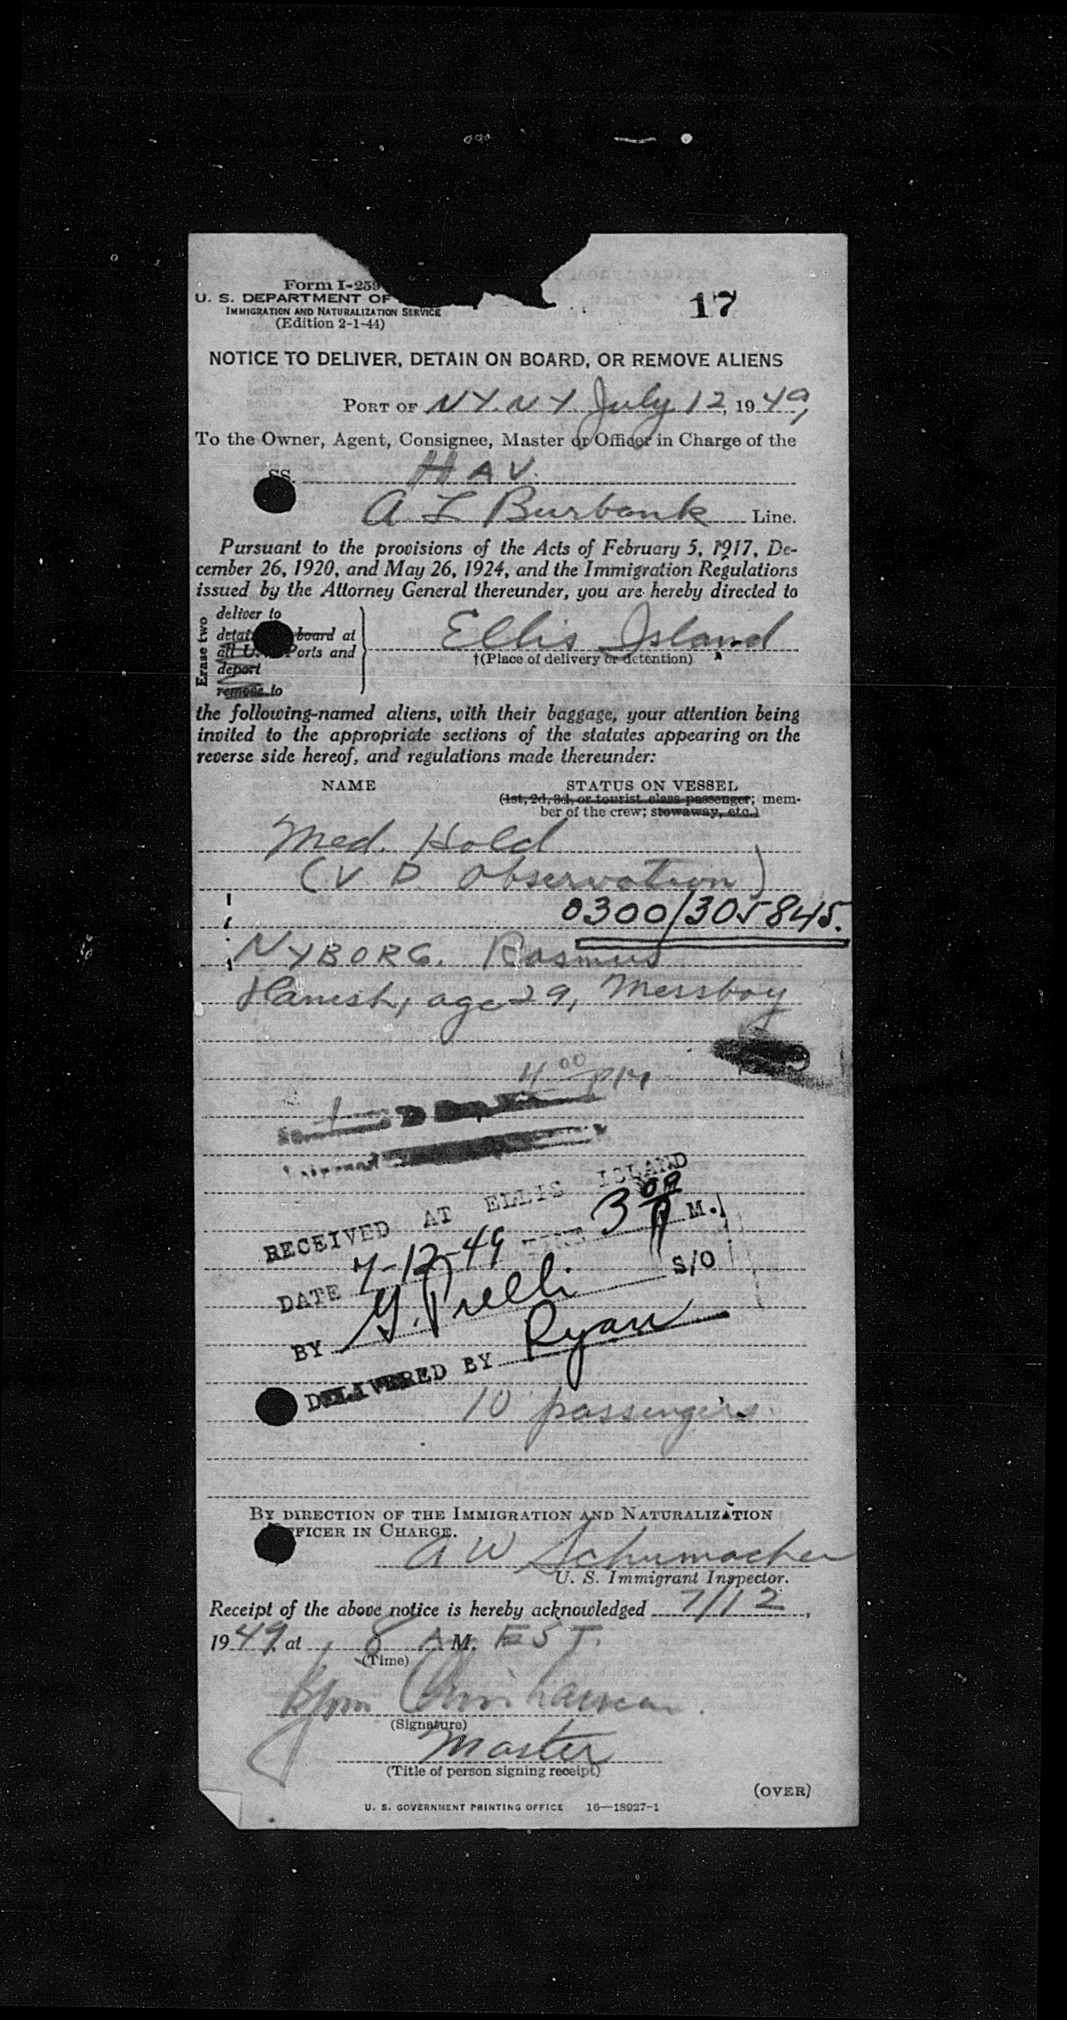 Form I-259
17
U. S. DEPARTMENT OF
IMMIGRATION AND NATURALIZATION SERVICE
(Edition 2-1-44)
NOTICE TO DELIVER, DETAIN ON BOARD, OR REMOVE ALIENS
PORT OF NY. NY July 12, 1949,
To the Owner, Agent, Consignee, Master or Officer in Charge of the
SS. HAV.
A L Burbank Line.
Pursuant to the provisions of the Acts of February 5, 1917, De-
cember 26, 1920, and May 26, 1924, and the Immigration Regulations
issued by the Attorney General thereunder, you are hereby directed to
Erase two
deliver to
board at
all Ports and
deport
remove to
Ellis Island
†(Place of delivery or detention)
the following-named aliens, with their baggage, your attention being
invited to the appropriate sections of the statutes appearing on the
reverse side hereof, and regulations made thereunder:
NAME STATUS ON VESSEL
(1st, 2d, 3d, or tourist class passenger; mem-
ber of the crew; stowaway, etc.)
Med. Hold
(V D. Observation)
0300/305845.
NYBORG. Rasmus
age 29, Messboy
4 00 PM
RECEIVED AT ELLIS ISLAND
DATE 7-12-49 TIME 3 00 M.
BY G. Prelli S/O
DELIVERED BY Ryan
10 passengers
BY DIRECTION OF THE IMMIGRATION AND NATURALIZATION
OFFICER IN CHARGE.
A W Schumacher
U. S. Immigrant Inspector.
Receipt of the above notice is hereby acknowledged 7/12,
1949 at 8 A M. EST.
(Time)
(Signature)
Master
(Title of person signing receipt)
(OVER)
U. S. GOVERNMENT PRINTING OFFICE 16—18927-1